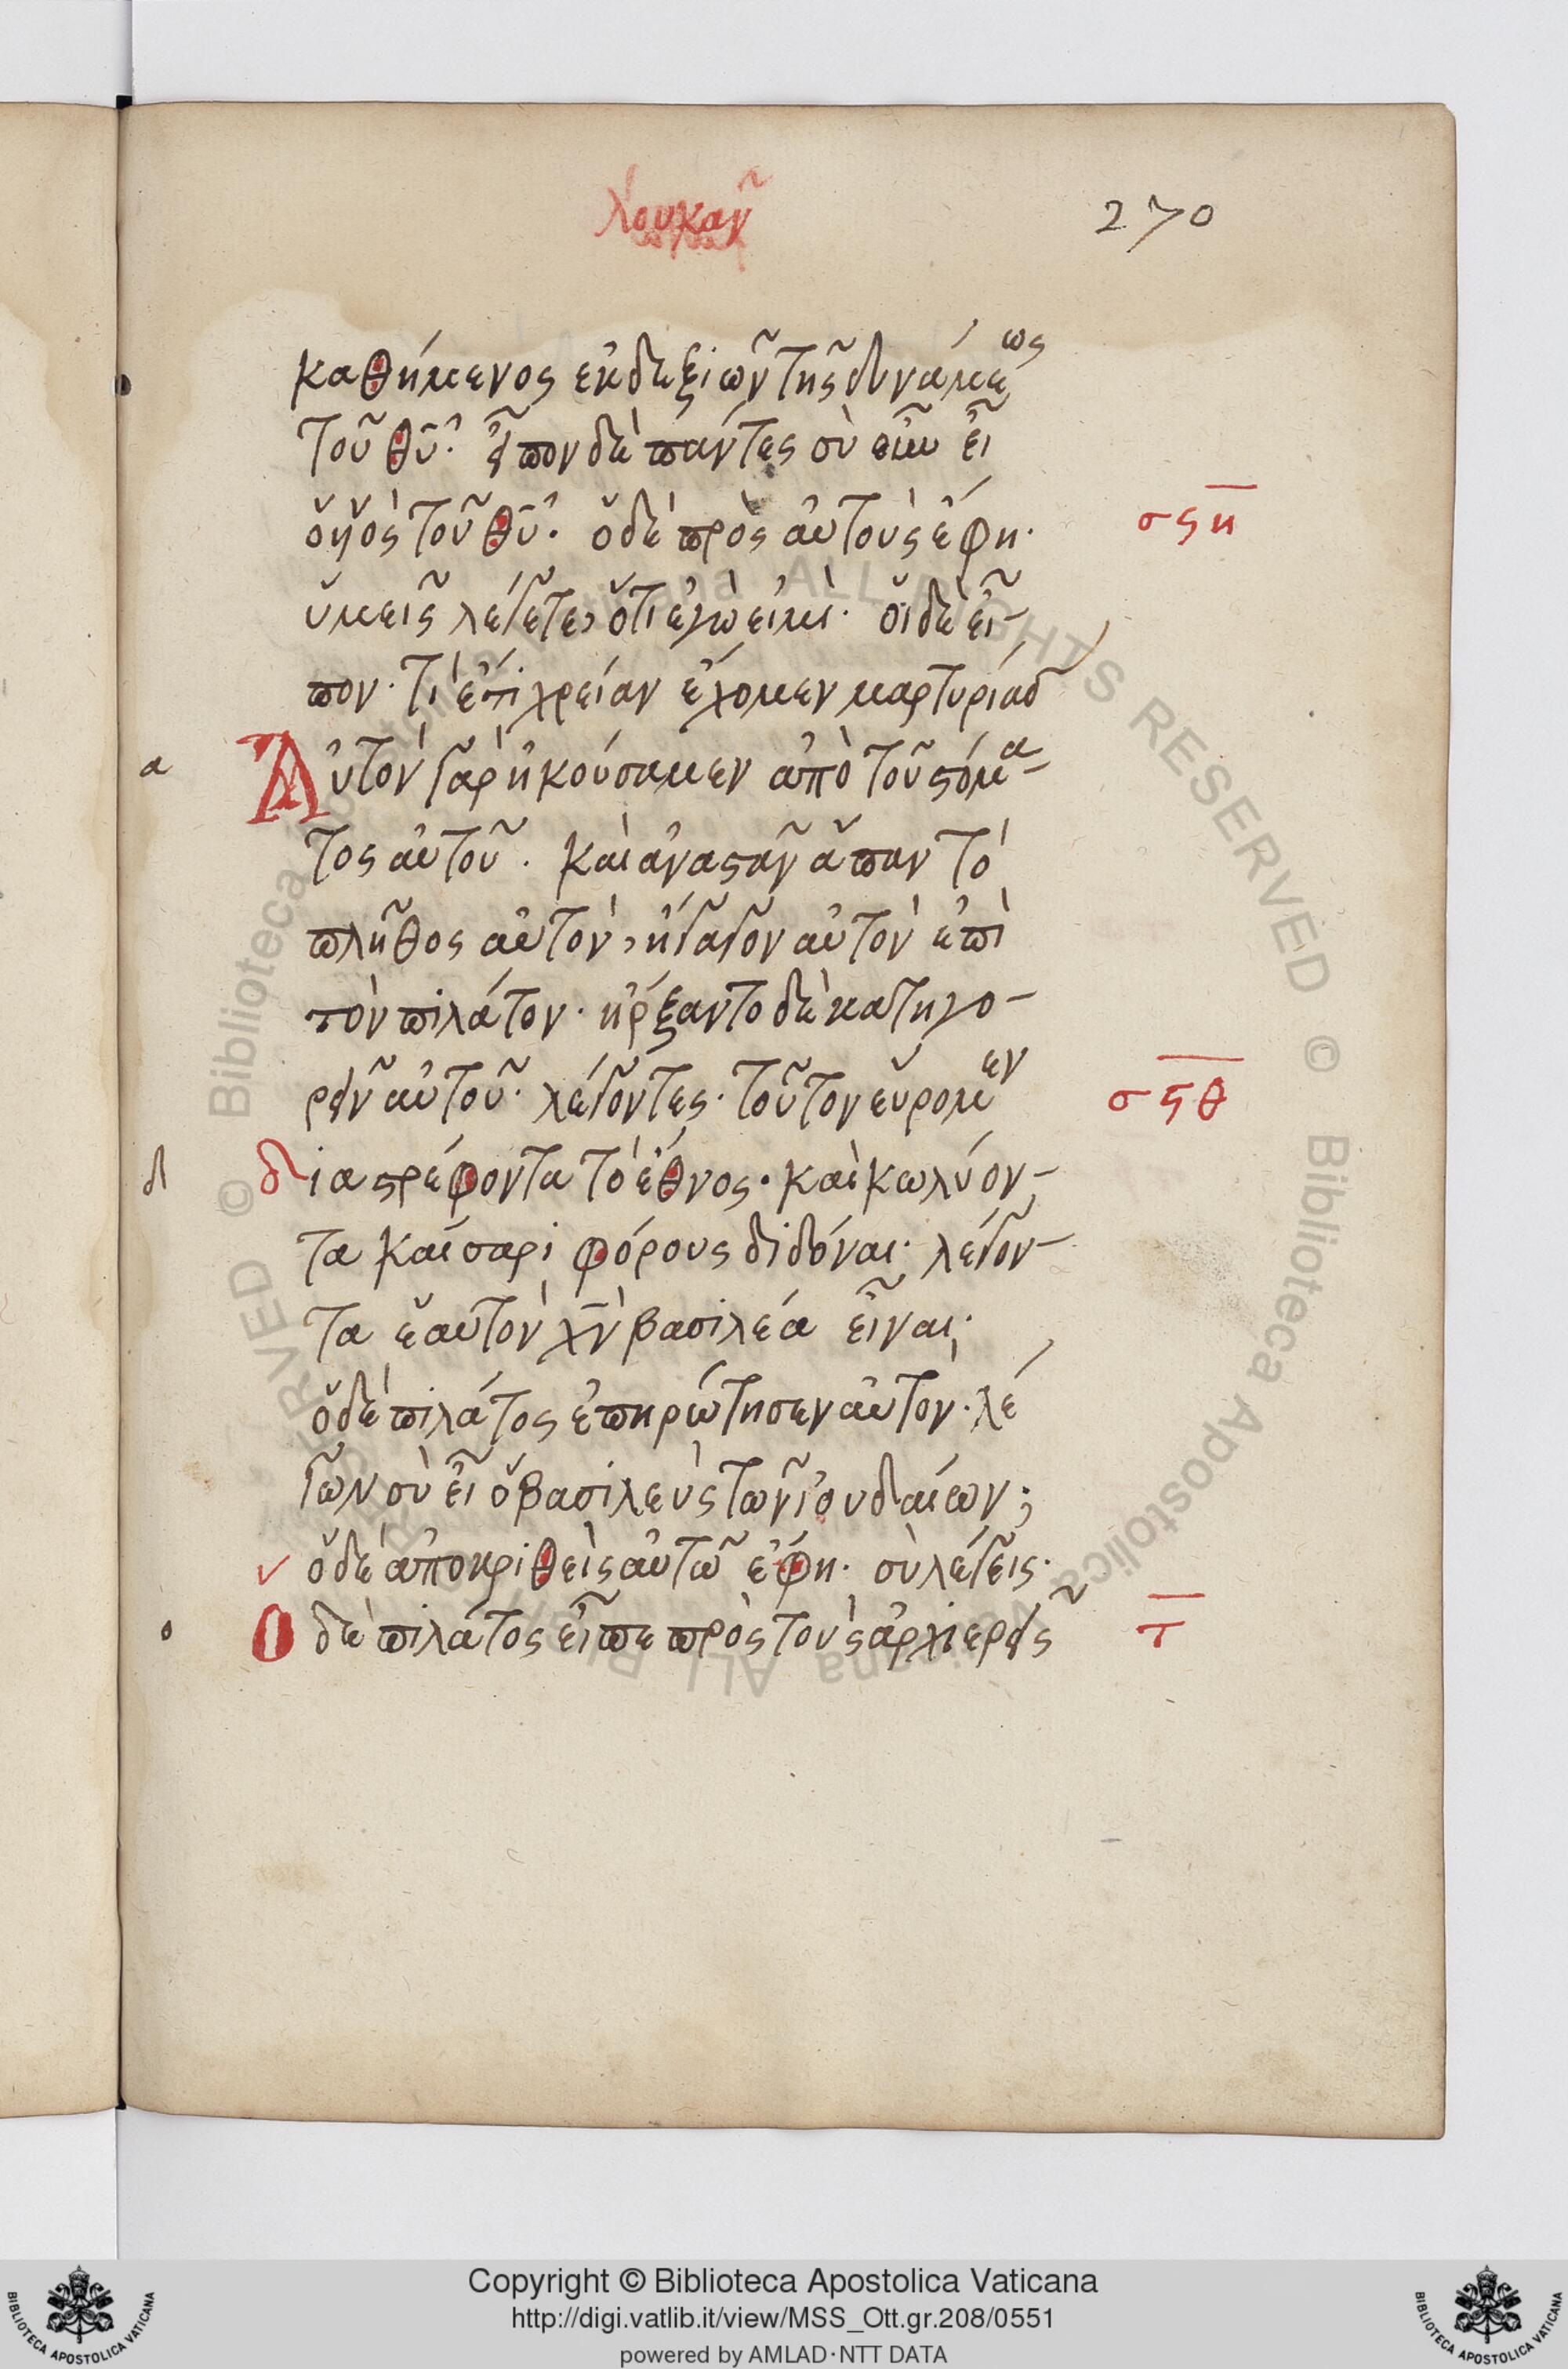 λουκᾶν
270
καθήμενος ἐκ δεξιῶν τῆς δυνάμεως
τοῦ θῦ. εἶπον δὲ πάντες σὺ οὖν εἶ
ὁ υἱὸς τοῦ θῦ. ὁ δὲ πρὸς αὐτοὺς ἔφη·
σςη
ὑμεῖς λέγετε, ὅτι ἐγὼ εἰμι· οἱ δὲ εἶ-
πον· τί ἔτι χρείαν ἔχομεν μαρτυρίας
α
Αὐτοὶ γὰρ ἠκούσαμεν ἀπὸ τοῦ στόμα-
τος αὐτοῦ. καὶ ἀναστᾶν ἅπαν τὸ
πλῆθος αὐτὸν, ἤγαγον αὐτὸν ἐπὶ
τὸν πιλάτον· ἤρξαντο δὲ κατηγο-
ρεῖν αὐτοῦ· λέγοντες· τοῦτον εὕρομεν
σςθ
δ
διαστρέφοντα τὸ ἔθνος· καὶ κωλύον-
τα καίσαρι φόρους διδόναι· λέγον-
τα ἑαυτὸν χν βασιλέα εἶναι·
ὁ δὲ πιλάτος ἐπηρώτησεν αὐτὸν· λέ
γων σὺ εἶ ὁ βασιλεὺς τῶν ἰουδαίων;
ὁ δὲ ἀποκριθεὶς αὐτῶ ἔφη· σὺ λέγεις·
ο
Ο δὲ πιλάτος εἶπε πρὸς τοὺς ἀρχιερεῖς
τ
Copyright © Biblioteca Apostolica Vaticana
http://digi.vatlib.it/view/MSS_Ott.gr.208/0551
powered by AMLAD·NTT DATA